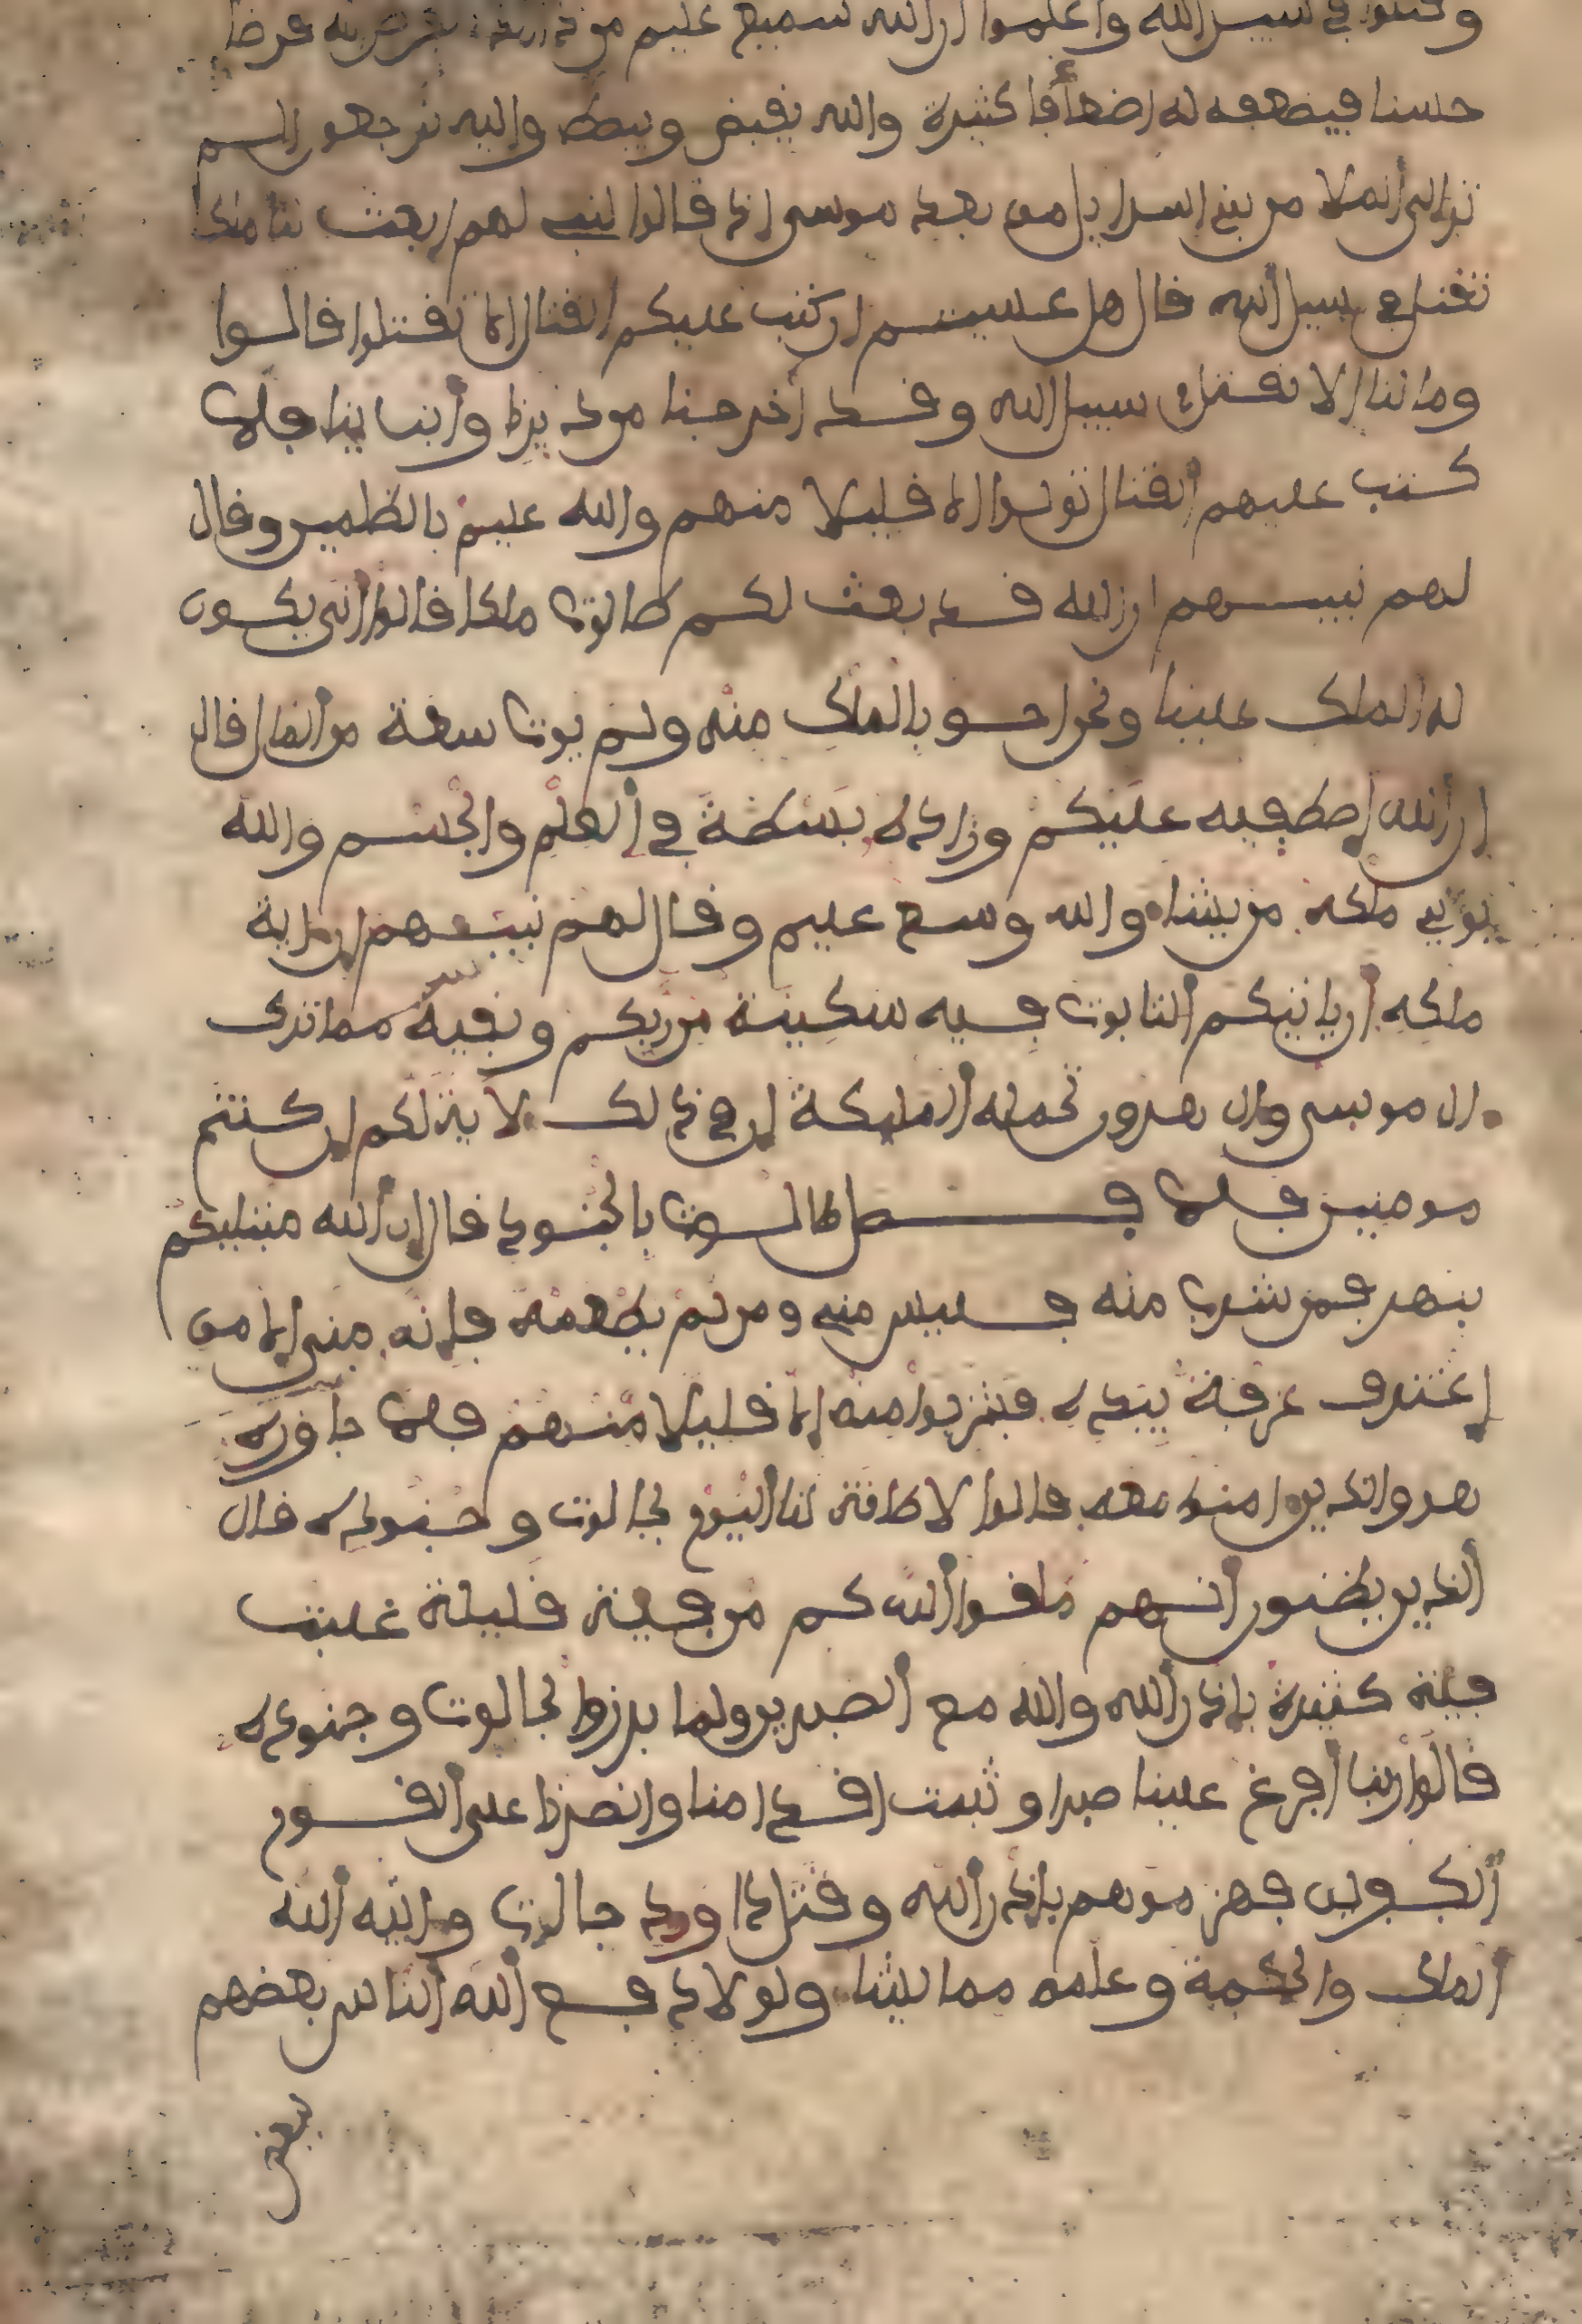 وقتلوا في سبيل الله واعلموا ان الله سميع عليم من ذا الذي يقرض الله قرضا
حسنا فيضعفه له اضعافا كثيرة والله يقبض ويبصط وإليه ترجعون الم
تر الى الملا من بني إسراءيل من بعد موسى إذ قالوا لنبي لهم ابعث لنا ملكا
نقتل في سبيل الله قال هل عسيتم إن كتب عليكم القتال الا تقتلوا قالوا
وما لنا الا نقتل في سبيل الله وقد أخرجنا من ديرنا وأبنا ينا فلما
كتب عليهم القتال تولوا الا قليلا منهم والله عليم بالظلمين وقال
لهم نبيـهم ان الله قد بعث لكم طالوت ملكا قالوا أنى يكون
له الملك علينا ونحن احق بالملك منه ولم يوت سعة من المال قال
إن الله إصطفيه عليكم وزاده بسطة في العلم والجسم والله
يوتي ملكه من يشاء والله وسع عليم وقال لهم نبيـهم إن ءاية
ملكه أن ياتيكم التابوت فيه سكينة من ربكم وبقية مما ترك
ءال موسى وءال هرون تحمله الملئكة إن في ذلك لاية لكم إن كنتم
مومنين فلما فصل طالوت بالجنود قال إن الله مبتليكم
بنهر فمن شرب منه فليس مني ومن لم يطعمه فإنه مني إلا من
إغترف غرفة بيده فشربوا منه إلا قليلا منهم فلما جاوزه
هو والذين ءامنوا معه قالوا لا طاقة لنا اليوم بجالوت وجنوده قال
الذين يظنون أنهم ملقوا الله كم من فئة قليلة غلبت
فئة كثيرة بإذن الله والله مع الصبرين ولما برزوا لجالوت وجنوده
قالوا ربنا أفرغ علينا صبرا وثبت اقدامنا وانصرنا على القوم
الكفرين فهزموهم بإذن الله وقتل داوود جالوت وءاتيه الله
الملك والحكمة وعلمه مما يشاء ولولا دفع الله الناس بعضهم
ببعض